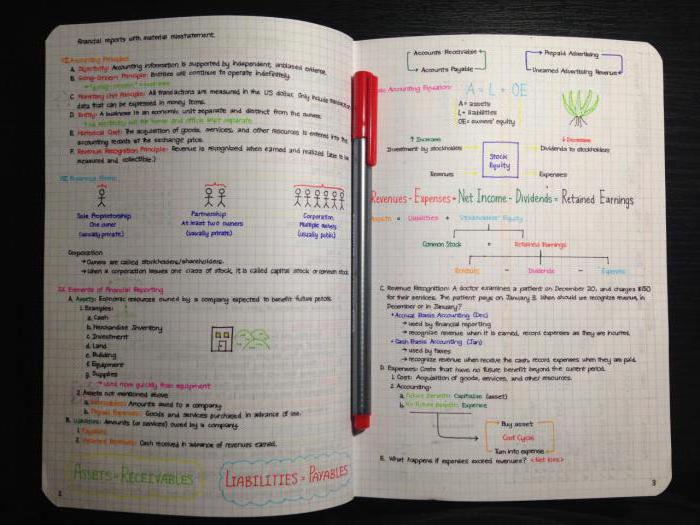 financial reports with material misstatement.
VII. Accounting Principles
A. Objectivity: Accounting information is supported by independent, unbiased evidence.
B. Going-Concern Principle: Entities will continue to operate indefinitely.
C. Monetary Unit Principle: All transactions are measured in the US dollar. Only include transaction
data that can be expressed in money terms.
D. Entity: A business is an economic unit separate and distinct from the owners.
E. Historical Cost: The acquisition of goods, services, and other resources is entered into the
accounting records at the exchange price.
F. Revenue Recognition Principle: Revenue is recognized when earned and realized.
measured and collectible.)
VIII. Business Forms
Sole Proprietorship
One owner
(usually private)
Partnership
At least two owners
(usually private)
Corporation
Multiple owners
(usually public)
Corporation
→ Owners are called stockholders/shareholders.
→ When a corporation issues one class of stock, it is called capital stock or common stock
IX. Elements of Financial Reporting
A. Assets: Economic resources owned by a company expected to benefit future periods.
1. Examples:
a. Cash
b. Merchandise Inventory
c. Investment
d. Land
e. Building
f. Equipment
g. Supplies
→ used more quickly than equipment
2. Assets not mentioned above
a. Receivables: Amounts owed to a company
b. Prepaid Expenses: Goods and services purchased in advance of use.
B. Liabilities: Amounts (or services) owed by a company.
1. Payables
2. Unearned Revenues: Cash received in advance of revenues earned.
ASSETS = RECEIVABLES
LIABILITIES = PAYABLES
2
Accounts Receivable
→ Accounts Payable
→ Prepaid Advertising
Unearned Advertising Revenue
Accounting Equation: A = L + OE
A = assets
L = liabilities
OE = owners' equity
↑ Increase
Investment by stockholders
Revenues
Stock
Equity
↓ Decrease
Dividends to stockholders
Expenses
Revenues - Expenses = Net Income - Dividends = Retained Earnings
Assets = Liabilities + Stockholders' Equity
Common Stock + Retained Earnings
Revenues - Dividends - Expenses
C. Revenue Recognition: A doctor examines a patient on December 20, and charges $150
for their services. The patient pays on January 3. When should we recognize revenue, in
December or in January?
• Accrual Basis Accounting (Dec)
→ used by financial reporting
→ recognize revenue when it is earned, record expenses as they are incurred.
• Cash Basis Accounting (Jan)
→ used by taxes
→ recognize revenue when receive the cash, record expenses when they are paid.
D. Expenses: Costs that have no future benefit beyond the current period.
1. Cost: Acquisition of goods, services, and other resources.
2. Accounting:
a. Future Benefit: Capitalize (asset)
b. No Future Benefit: Expense
Buy asset
Cost Cycle
Turn into expense
E. What happens if expenses exceed revenues? <Net loss>
3